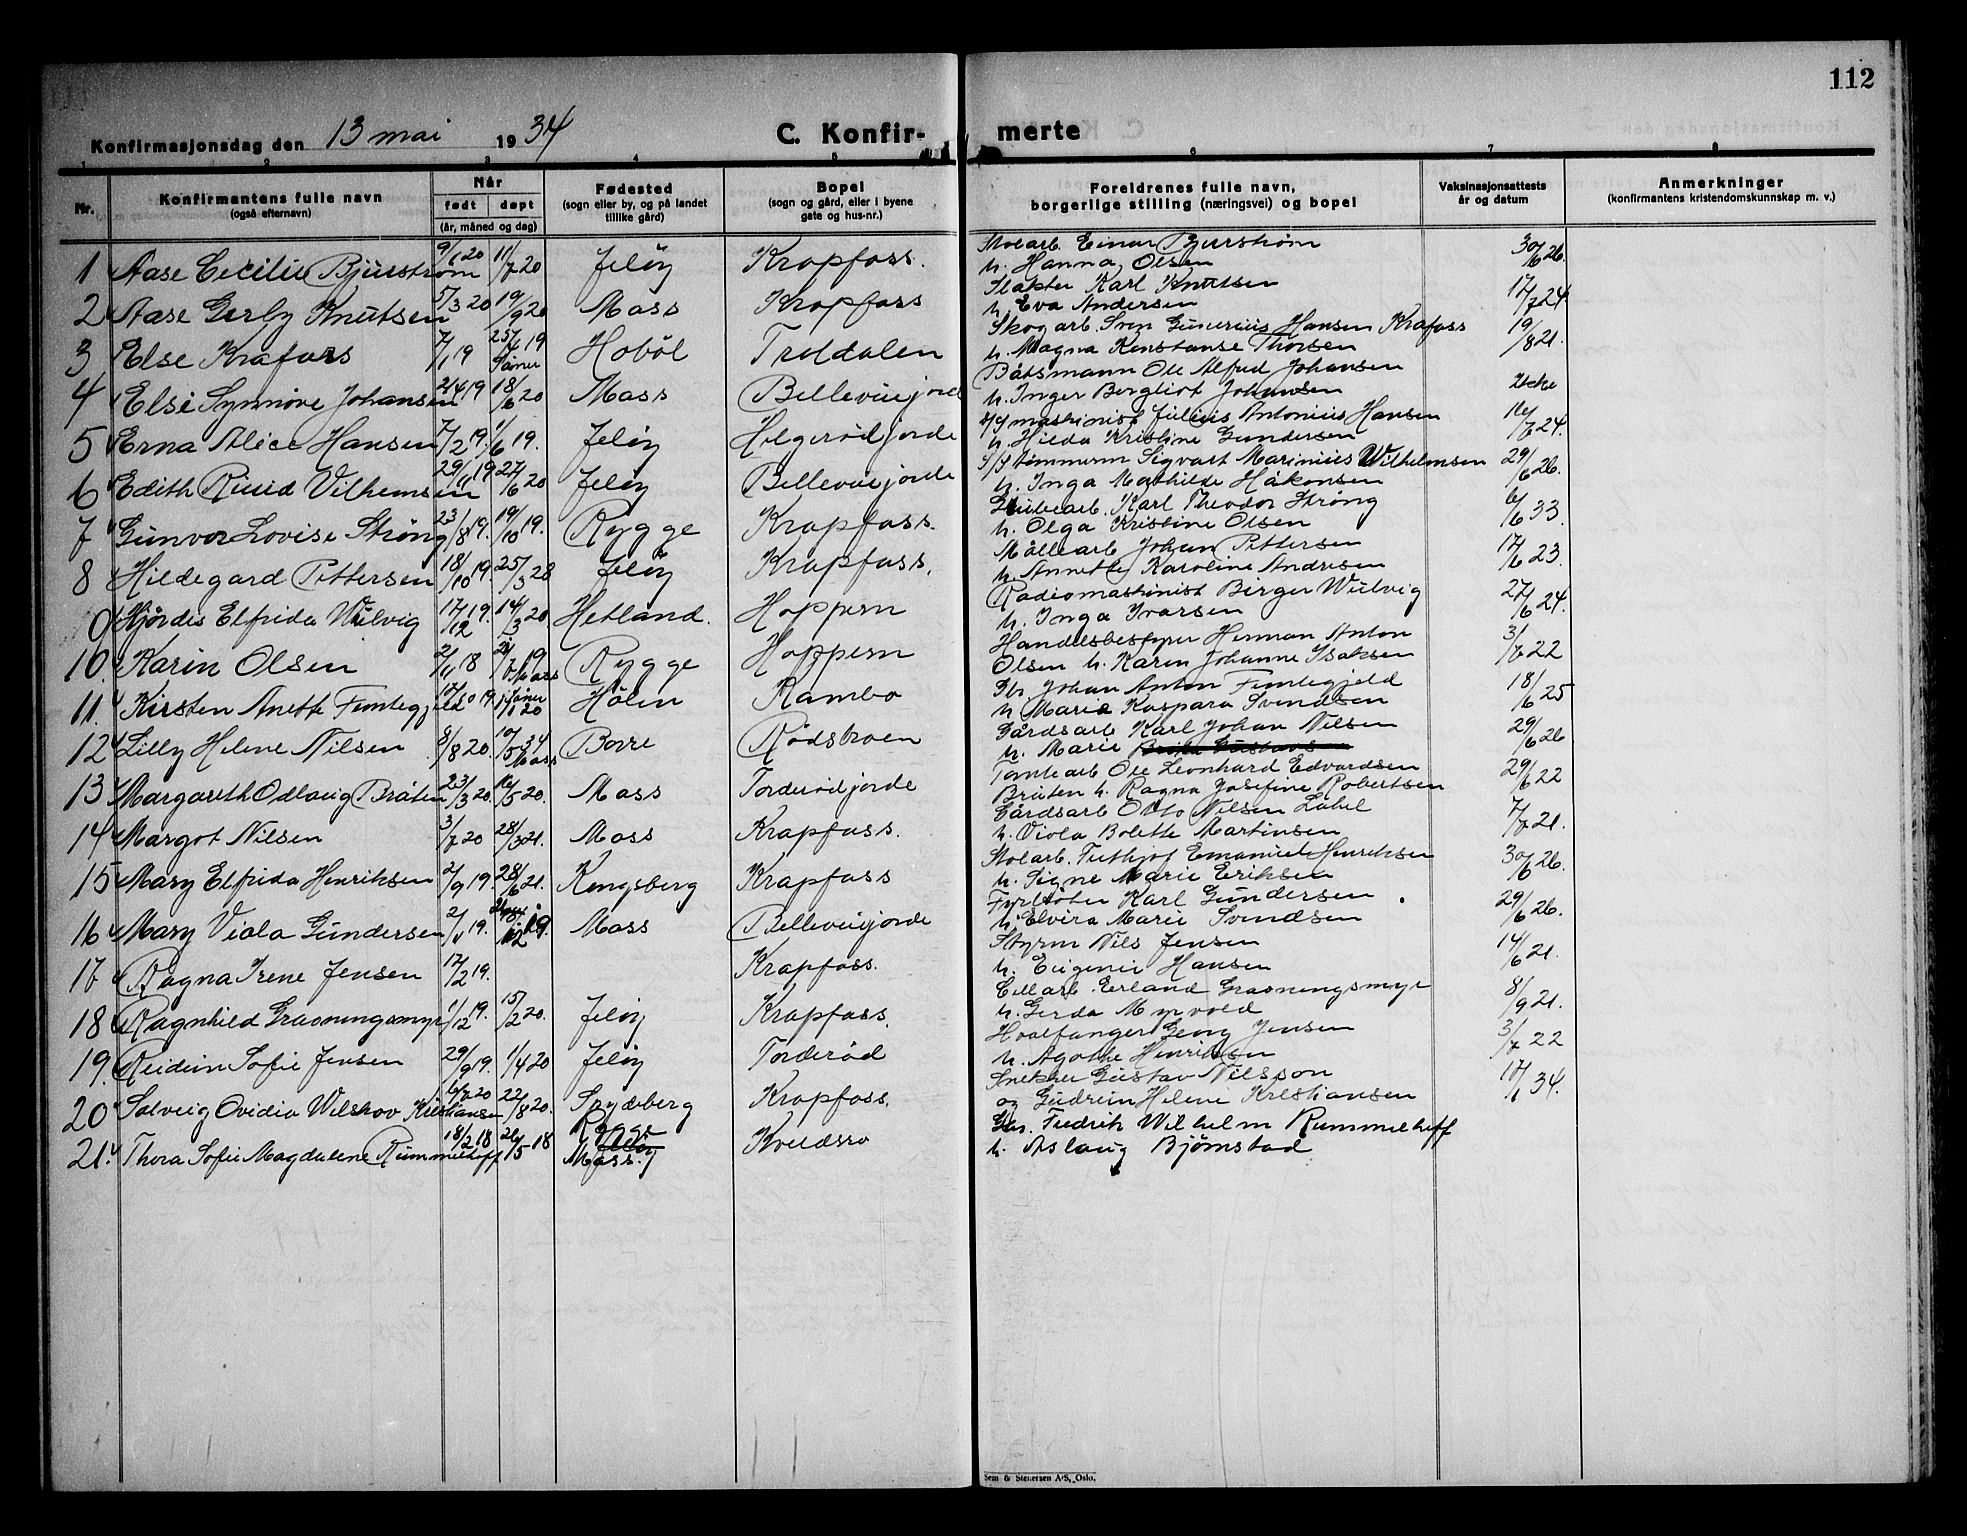 112
Konfirmasjonsdag den 13 mai 1934 C. Konfir- merte
1 2 3 4 5 6 7 8
Nr. Konfirmantens fulle navn (også efternavn) Når født døpt (år, måned og dag) Fødested (sogn eller by, og på landet tillike gård) Bopel (sogn og gård, eller i byene gate og hus-nr.) Foreldrenes fulle navn, borgerlige stilling (næringsvei) og bopel Vaksinasjonsattests år og datum Anmerkninger (konfirmantens kristendomskunnskap m. v.)
1 Aase Cecilie Bjurstrøm 9/1 20 11/7 20 Jeløy Krapfoss. Stolarb. Einar Bjurstrøm
h. Hanna Olsen 30/6 26.
2 Aase Gerly Knutsen 5/3 20 19/9 20 Moss Krapfoss Slakter Karl Knutsen
h. Eva Andersen 17/7 24
3 Else Krafoss 7/1 19 25/6 19 Såner Hobøl Troldalen Skogarb. Sven Gunerius Hansen Krafoss
h. Magna Konstanse Thorsen 19/8 21.
4 Else Synnøve Johansen 21/4 19 18/6 20 Moss Bellevuejord Båtsmann Ole Alfred Johansen
h. Inger Bergliot Johansen Ikke
5 Erna Alice Hansen 7/2 19. 1/6 19. Jeløy Helgerødjorde maskinist Julius Antonius Hansen
h. Hilda Kristine Gundersen 16/7 24.
6 Edith Ruud Vilhemsen 29/11 19 27/6 20 Jeløy Bellevuejorde S/S tømmerm Sigvart Marinius Wilhelmsen
h. Inga Mathilde Håkonsen 29/6 26.
7 Gunvor Lovise Strøng 23/8 19. 19/10 19. Rygge Krapfoss. Karl Theodor Strøng
h. Olga Kristine Olsen 6/6 33.
8 Hildegard Pettersen 18/10 19. 25/3 28 Jeløy Krapfoss. Møllearb Johan Pettersen
h. Annette Karoline Andresen 17/6 23.
9 Hjørdis Elfrida Wulvig 17/12 19. 14/3 20 Hetland. Hoppern Radiomaskinist Birger Wulvig
h. Inga Ivarsen 27/6 24.
10. Karin Olsen 2/11 18 Moss Rygge Hoppern Handelsbestyrer Herman Anton
Olsen h. Karen Johanne Isaksen 3/7 22
11. Kirsten Anette Fimtegjeld 17/10 19. Såner 1/1 20 Hølen Kambo Johan Anton Fimtegjeld
h Marie Kaspara Svendsen 18/6 25
12 Lilly Helene Nilsen 8/8 20. 10/5 34 Moss Borre Rødsbroen Gårdsarb Karl Johan Nilsen
h. Marie 29/6 26
13 Margareth Odlaug Bråten 23/3 20. 16/5 20. Moss Torderødjorde Tomtearb Ole Leonhard Edvardsen
Bråten h. Ragna Josefine Robertsen 29/6 22
14 Margot Nilsen 3/7 20 28/3 21. Moss Krapfoss. Gårdsarb Otto Nilsen
h. Viola Bolette Martinsen 7/7 21.
15 Mary Elfrida Henriksen 2/9 19. 28/6 21. Kongsberg Krapfoss Stolarb. Fritjof Emanuel Henriksen
h. Signe Marie Eriksen 30/6 26.
16 Mary Viola Gundersen 2/11 19. 12 19. Moss Bellevuejorde Fyrbøter Karl Gundersen
h. Elvira Marie Svendsen 29/6 26.
17 Ragna Irene Jensen 17/2 19. Krapfoss. Styrm Nils Jensen
h. Eugenie Hansen 14/6 21.
18 Ragnhild Grasningsmyr 1/12 19. 15/2 20. Jeløy Krapfoss. Cell.arb. Erland Grasningsmyr
h. Gerda Myrvold 8/9 21.
19. Reidun Sofie Jensen 29/9 19. 1/4 20 Jeløy Torderød Hvalfanger Georg Jensen
h. Agathe Henriksen 3/7 22
20 Solveig Ovidia Wilskov Kristiansen 6/7 20 22/8 20. Spydeberg Krapfoss. Snekker Gustav Nilsson
og Gudrun Helene Kristiansen 17/1 34.
21. Thora Sofie Magdalene Rummelhoff 18/2 18 26/5 18 Jeløy Moss. Fredrik Wilhelm Rummelhoff
h. Aslaug Bjørnstad
Sem & Stenersen A/S, Oslo.